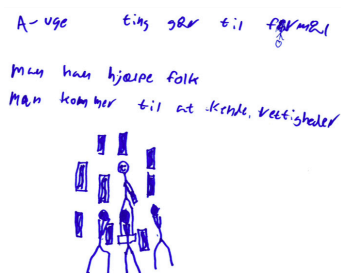 A-uge ting gør til formål
man kan hjælpe folk
man kommer til at kende, rettigheder